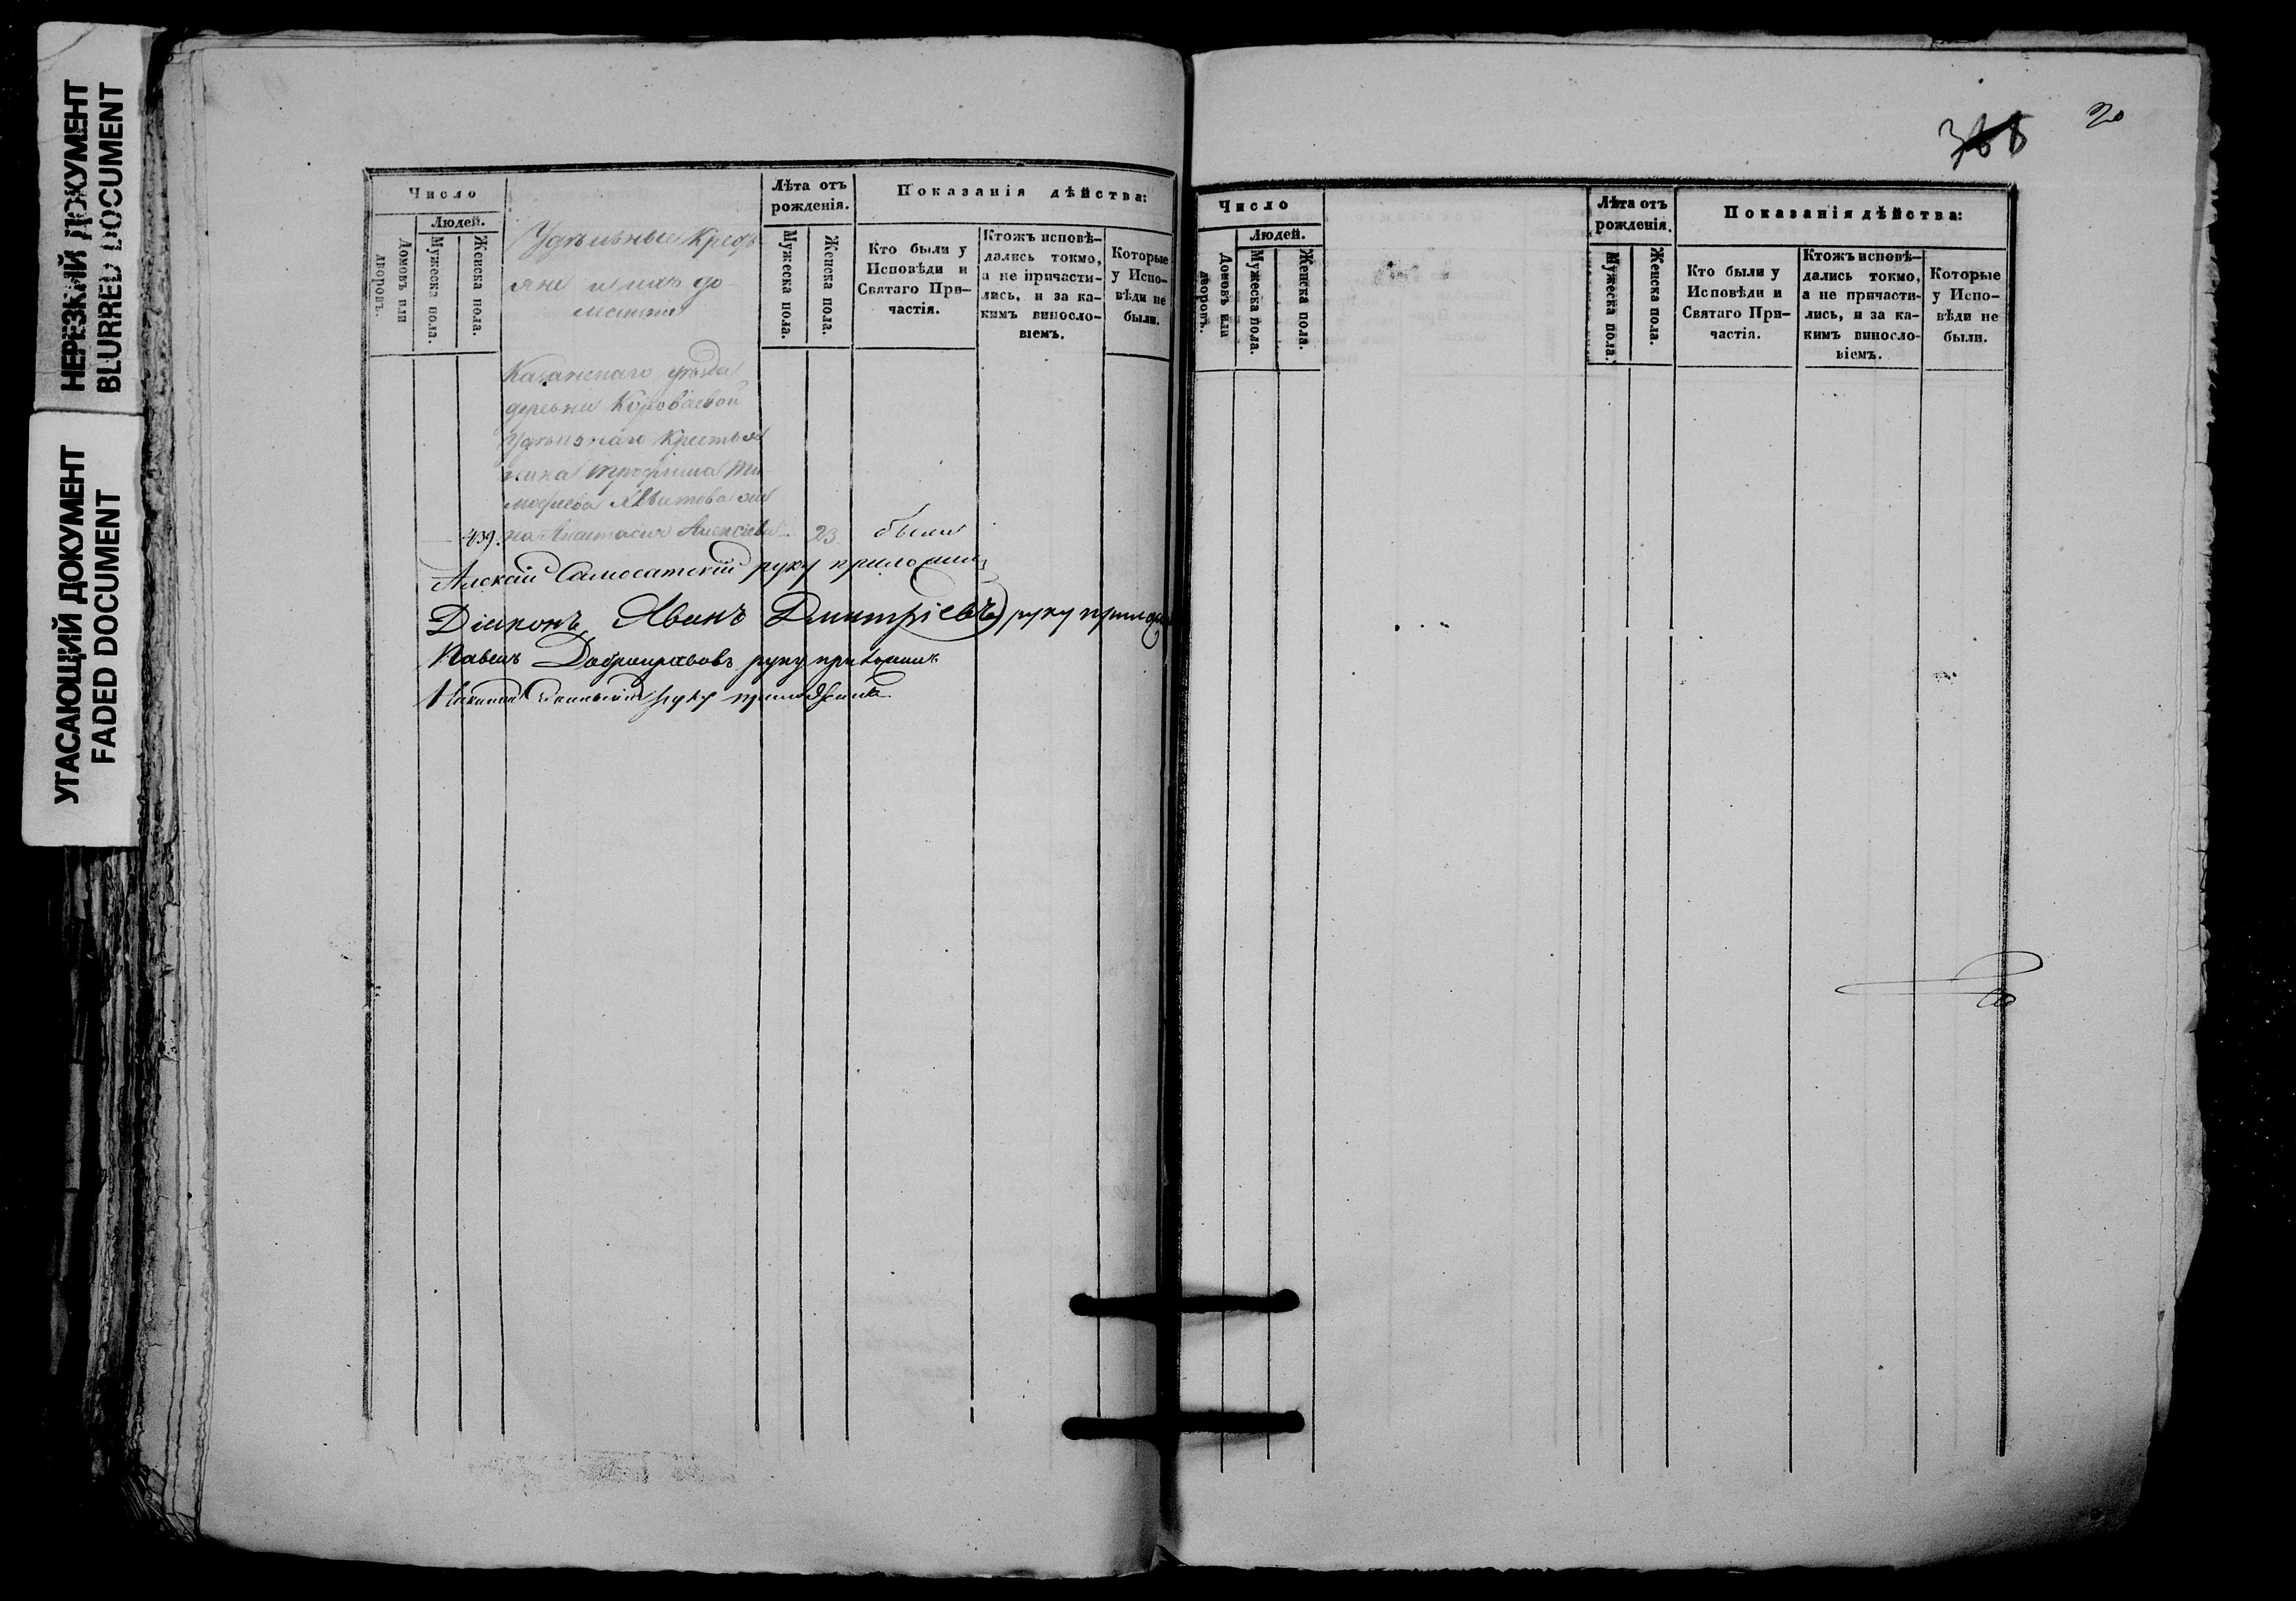 НЕРЕЗКИЙ ДОКУМЕНТ
BLURRED DOCUMENT
УГАСАЮЩИЙ ДОКУМЕНТ
FADED DOCUMENT
Число
Людей.
Домовъ или дворовъ.
Мужеска пола.
Женска пола.
Удѣльные Кресть
яне и ихъ до
машніе
Лѣта отъ рожденія.
Мужеска пола.
Женска пола.
Показанія дѣйства:
Кто были у Исповѣди и Святаго Причастія.
Ктожъ исповѣдались токмо, а не причастились, и за какимъ винословіемъ.
Которые у Исповѣди не были.
Казанскаго уѣзда
деревни Короваевой
Удѣльнаго Крестья
нина Трофима Ти
мофеева же
439. на Анастасія Алексѣева 23 были
Алексій Самосатскій руку приложилъ
Діаконъ Іванъ Дмитріевъ руку прилож
Павелъ Добронравовъ руку приложилъ
руку приложилъ
388
20
Число
Людей.
Домовъ или дворовъ.
Мужеска пола.
Женска пола.
Лѣта отъ рожденія.
Мужеска пола.
Женска пола.
Показанія дѣйства:
Кто были у Исповѣди и Святаго Причастія.
Ктожъ исповѣдались токмо, а не причастились, и за какимъ винословіемъ.
Которые у Исповѣди не были.